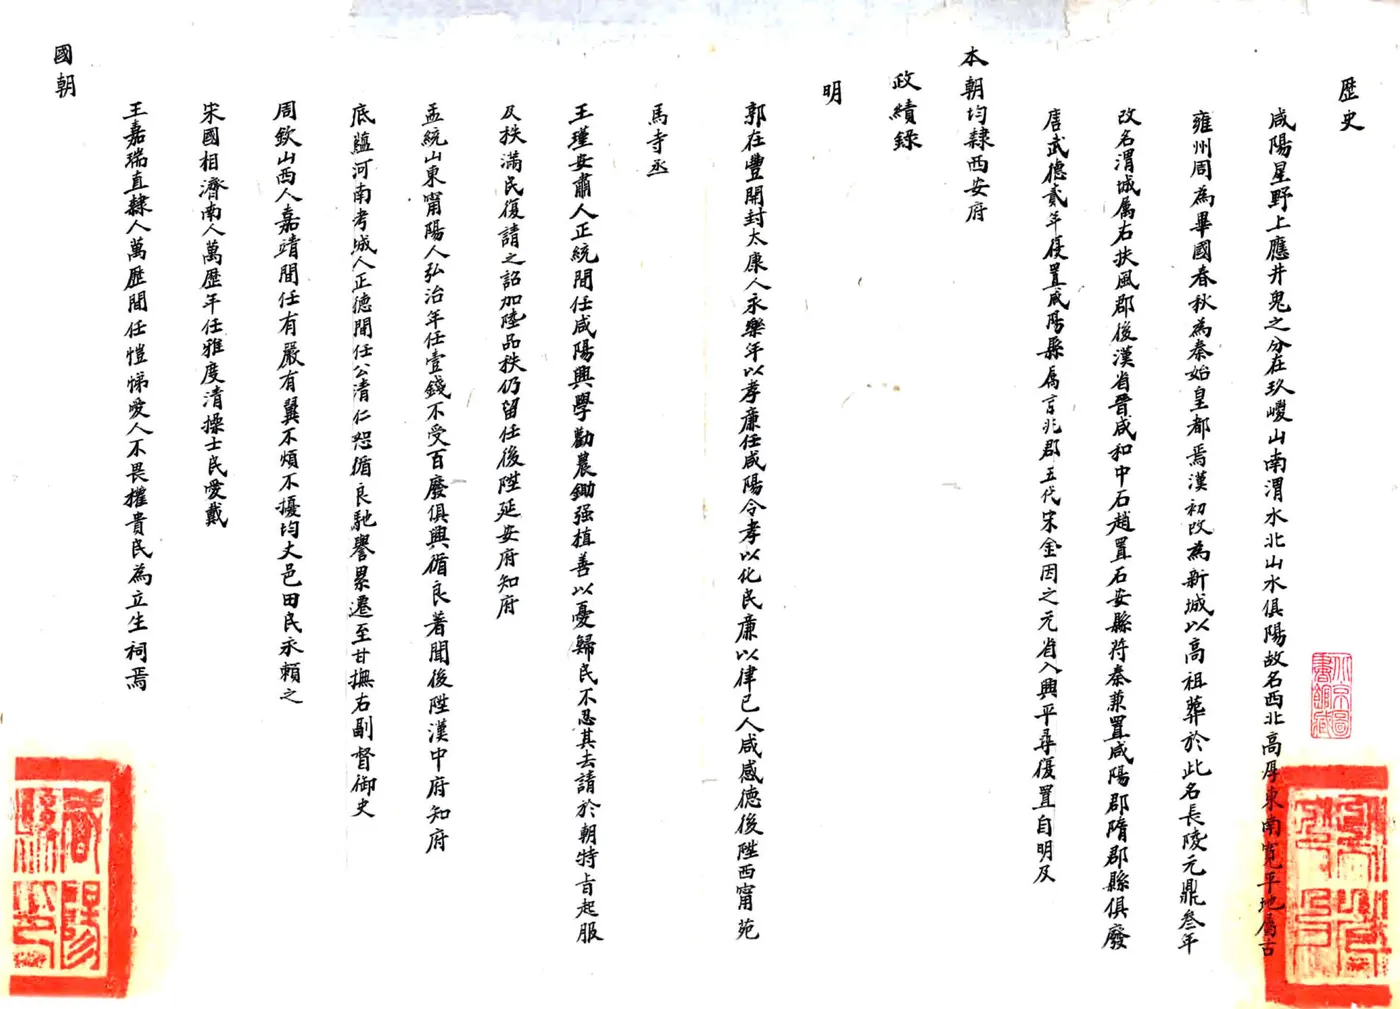 歷史
咸陽星野上應井鬼之分在玖嵕山南渭水北山水俱陽故名西北高厚東南寬平地屬古
雍州周為畢國春秋為秦始皇都焉漢初改為新城以高祖葬於此名長陵元鼎叁年
改名渭城属右扶風郡後漢省晉咸和中石趙置石安縣苻秦兼置咸陽郡隋郡縣俱廢
唐武德貳年復置咸陽縣屬京兆郡五代宋金因之元省入興平尋復置自明及
本朝均隸西安府
政績錄
明
郭在豐開封太康人永樂年以孝廉任咸陽令孝以化民廉以律己人咸感德後陞西甯苑
馬寺丞
王瑾安肅人正統間任咸陽興學勸農鋤强植善以憂歸民不忍其去請於朝特旨起服
及秩滿民復請之詔加陸品秩仍留任後陞延安府知府
孟統山東甯陽人弘治年任壹錢不受百廢俱興循良著聞後陞漢中府知府
底蘊河南考城人正德間任公清仁恕循良馳譽累遷至甘撫右副督御史
周欽山西人嘉靖間任有嚴有翼不煩不擾均丈邑田民永賴之
宋國相濟南人萬歷年任雅度清操士民愛戴
王嘉瑞直隸人萬歷間任愷悌愛人不畏權貴民為立生祠焉
國朝
咸陽
縣印